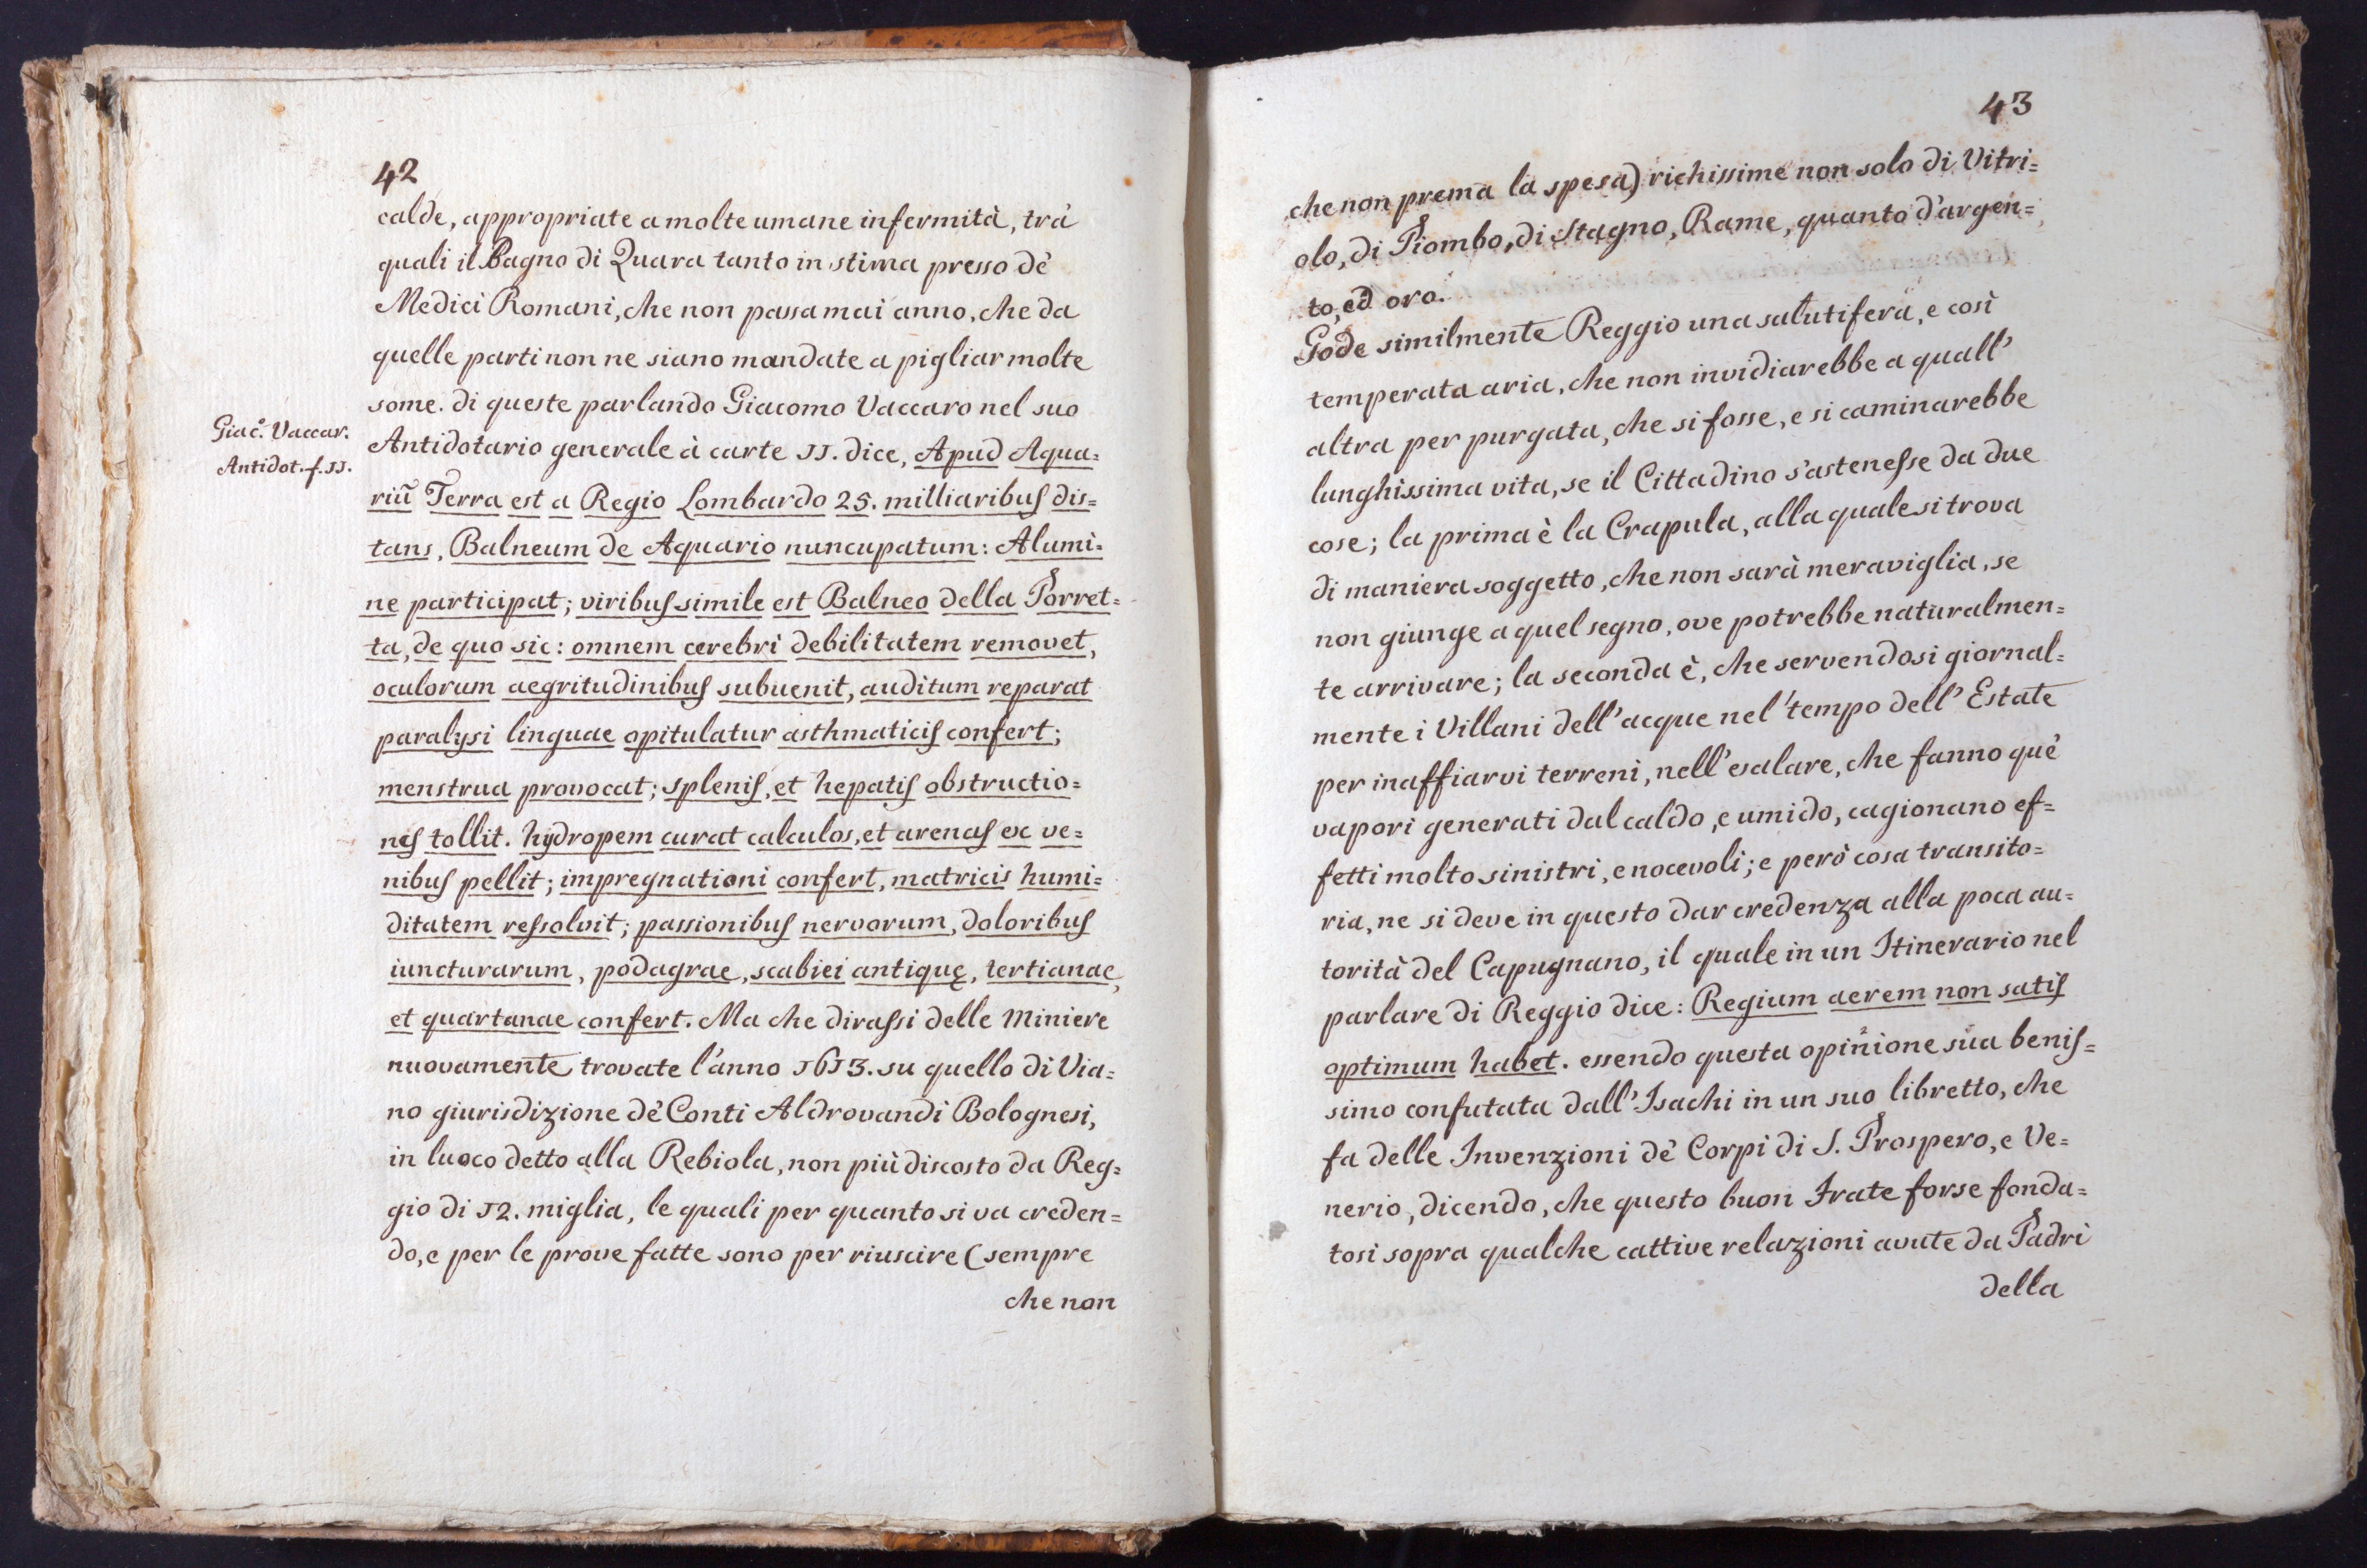 42
calde, appropriate a molte umane infermità, trà
quali il Bagno di Quara tanto in stima presso dè
Medici Romani, che non passa mai anno, che da
quelle parti non ne siano mandate a pigliar molte
some. di queste parlando Giacomo Vaccaro nel suo
Giac.º Vaccar.
Antidot. f. 11.
Antidotario generale à carte 11. dice, Apud Aqua=
riũ Terra est a Regio Lombardo 25. milliaribus dis=
tans, Balneum de Aquario nuncupatum: Alumi=
ne participat; viribus simile est Balneo della Porret=
ta, de quo sic: omnem cerebri debilitatem removet,
oculorum aegritudinibus subuenit, auditum reparat
paralysi linguae opitulatur asthmaticis confert;
menstrua provocat; splenis, et hepatis obstructio=
nes tollit. hydropem curat calculos, et arenas ex ve=
nibus pellit; impregnationi confert, matricis humi=
ditatem ressolvit; passionibus nervorum, doloribus
iuncturarum, podagrae, scabiei antiquę, tertianae,
et quartanae confert. Ma che dirassi delle Miniere
nuovamente trovate l'anno 1613. su quello di Via=
no giurisdizione dè Conti Aldrovandi Bolognesi,
in luoco detto alla Rebiola, non più discosto da Reg=
gio di 12. miglia, le quali per quanto si va creden=
do, e per le prove fatte sono per riuscire (sempre
che non
43
che non prema la spesa) richissime non solo di Vitri=
olo, di Piombo, di Stagno, Rame, quanto d'argen=
to, ed oro.
Gode similmente Reggio una salutifera, e così
temperata aria, che non invidiarebbe a quall'
altra per purgata, che si fosse, e si caminarebbe
lunghissima vita, se il Cittadino s'astenesse da due
cose; la prima è la Crapula, alla quale si trova
di maniera soggetto, che non sarà meraviglia, se
non giunge a quel segno, ove potrebbe naturalmen=
te arrivare; la seconda è, che servendosi giornal=
mente i Villani dell'acque nel tempo dell'Estate
per inaffiarvi terreni, nell'esalare, che fanno què
vapori generati dal caldo, e umido, cagionano ef=
fetti molto sinistri, e nocevoli; e però cosa transito=
ria, ne si deve in questo dar credenza alla poca au=
torità del Capugnano, il quale in un Itinerario nel
parlare di Reggio dice: Regium aerem non satis
optimum habet. essendo questa opinione sua benis=
simo confutata dall'Isachi in un suo libretto, che
fa delle Invenzioni dè Corpi di S. Prospero, e Ve=
nerio, dicendo, che questo buon Frate forse fonda=
tosi sopra qualche cattive relazioni avute da Padri
della